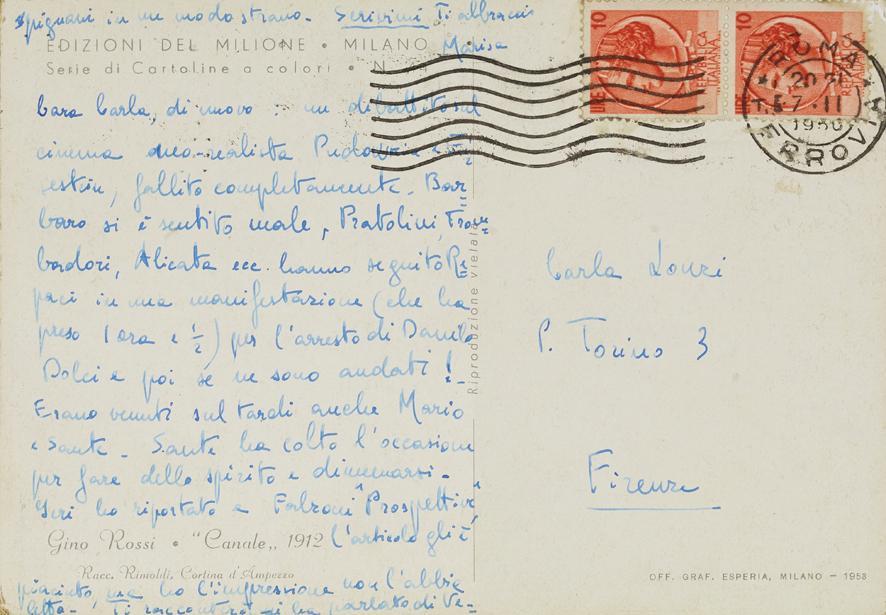 spignani in un modo strano. Scrivimi Ti abbraccio
Marisa
EDIZIONI DEL MILIONE • MILANO
Serie di Cartoline a colori • N.
Cara Carla, di nuovo: un dibattito sul
cinema neo-realista Pudovkin e
estein, fallito completamente. Bar
baro si è sentito male, Pratolini, Trom=
badori, Alicata ecc. hanno seguito Re
paci in una manifestazione (che ha
preso 1 ora e ½) per l'arresto di Danilo
Dolci e poi se ne sono andati!
Erano venuti sul tardi anche Mario
e Sante. Sante ha colto l'occasione
per fare dello spirito e dimenarsi.
Ieri ho riportato a Falzoni "Prospettive"
l'articolo gli è
Gino Rossi • "Canale„ 1912
Racc. Rimoldi, Cortina d'Ampezzo
piaciuto, ma ho l'impressione non l'abbia
letto. Ti racconterà si ha parlato di Ve=
Riproduzione vietata
10 LIRE
REPUBBLICA ITALIANA
10 LIRE
REPUBBLICA ITALIANA
ROMA
FERROVIA
20-21
1956
Carla Lonzi
P. Torino 3
Firenze
OFF. GRAF. ESPERIA, MILANO - 1953